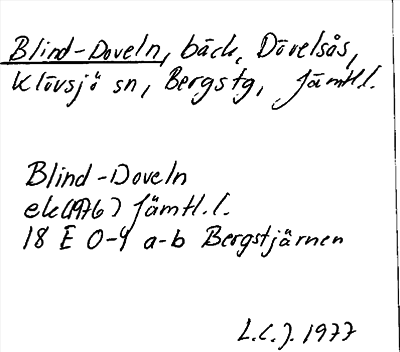 Blind-Doveln, bäck, Dövelsås,
Klövsjö sn, Bergs tg, Jämtl.l.
Blind-Doveln
ek(1976) Jämtl.l.
18 E 0-4 a-b Bergstjärnen
L.C.J. 1977